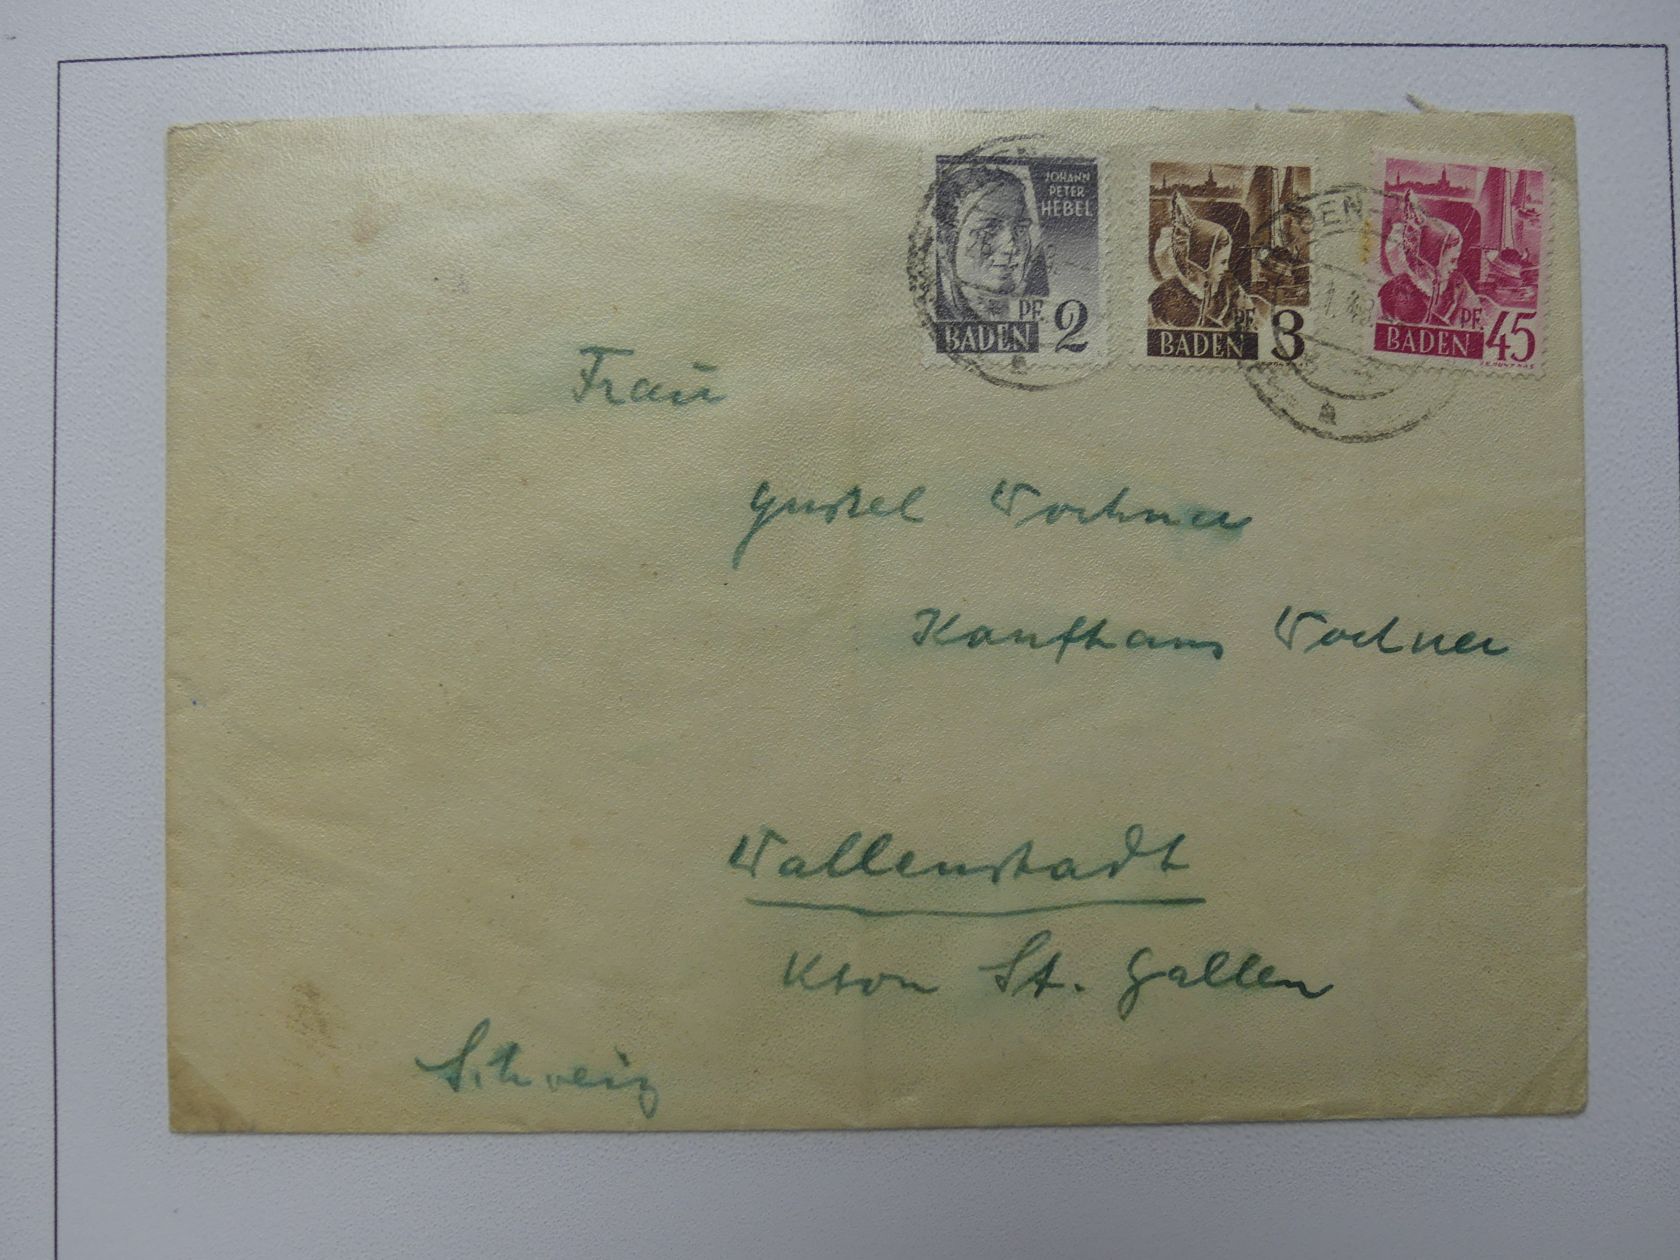 JOHANN
PETER
HEBEL
PF. 2
BADEN
PF. 3
BADEN
PF. 45
BADEN
Frau
Gustel Wochner
Kaufhaus Wochner
Wallenstadt
Kton St. Gallen
Schweiz